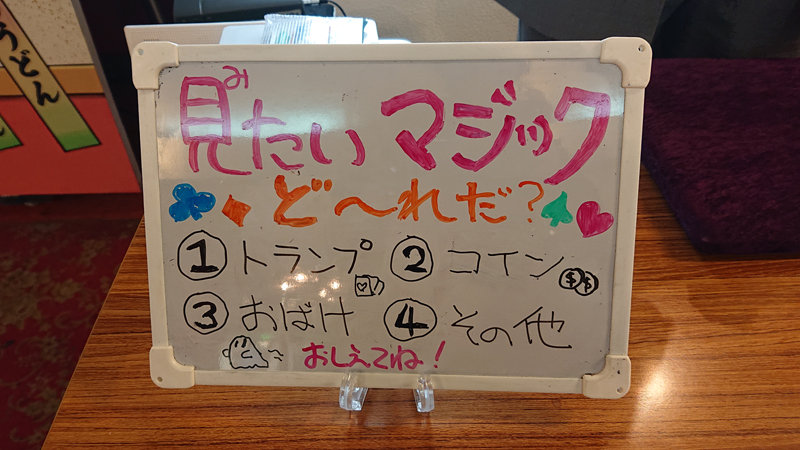 うどん
み
見たいマジック
ど〜れだ?
① トランプ ② コイン
$ $
③ おばけ ④ その他
おしえてね!